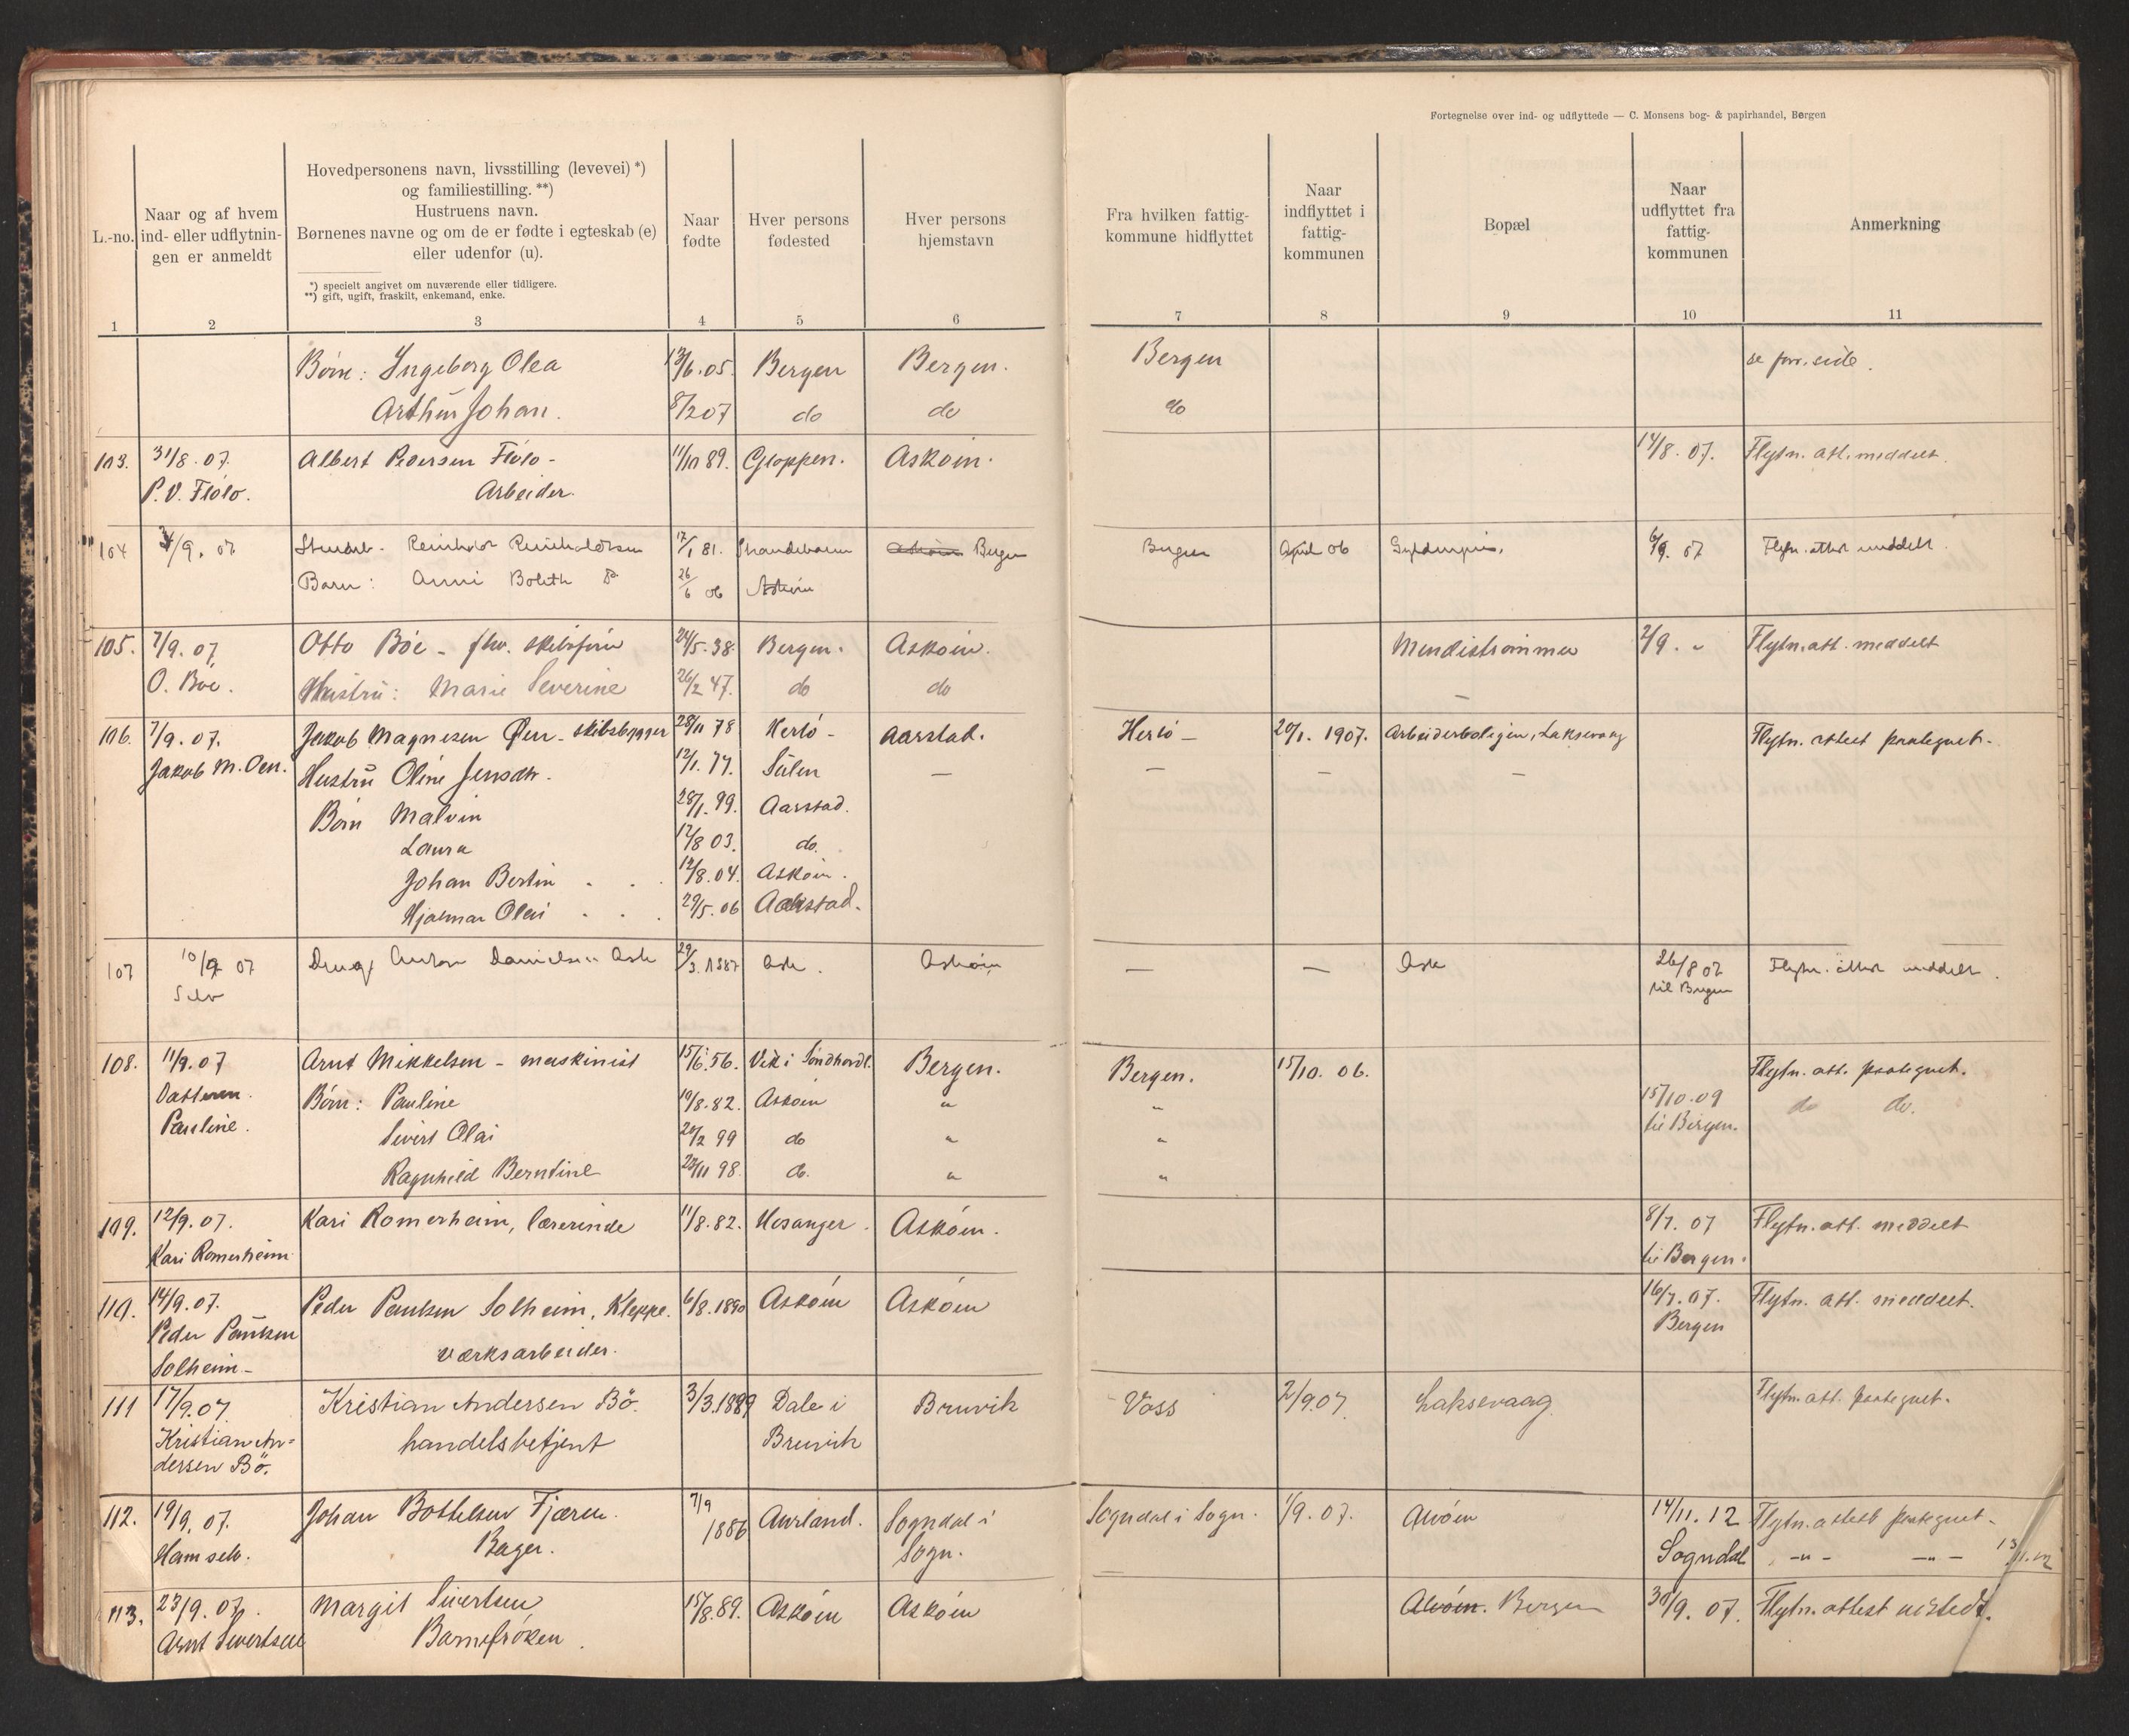 Fortegnelse over ind- og udflyttede — C. Monsens bog- & papirhandel, Bergen
L.-no.
Naar og af hvem
ind- eller udflytnin-
gen er anmeldt
Hovedpersonens navn, livsstilling (levevei) *)
og familiestilling. **)
Hustruens navn.
Børnenes navne og om de er fødte i egteskab (e)
eller udenfor (u).
*) specielt angivet om nuværende eller tidligere.
**) gift, ugift, fraskilt, enkemand, enke.
Naar
fødte
Hver persons
fødested
Hver persons
hjemstavn
Fra hvilken fattig-
kommune hidflyttet
Naar
indflyttet i
fattig-
kommunen
Bopæl
Naar
udflyttet fra
fattig-
kommunen
Anmerkning
1 2 3 4 5 6 7 8 9 10 11
Børn: Ingeborg Olea 13/6.05. Bergen Bergen. Bergen se forr. side.
Arthur Johan. 8/2 07 do do do
103. 31/8.07. Albert Pedersen Flölo - 11/10 89. Gloppen. Asköen. 14/8.07. Flytn. att. meddelt.
P.V. Flölo. Arbeider.
104 3/9. 07 Reinholdtsen 17/1 81. Strandebarm Bergen Bergen April 06 6/9. 07 Flytn. attest meddelt.
Barn: Anni 26/6 06 Asköen
105. 7/9.07 Otto Böe - fhv. skibsförer 24/5.38. Bergen. Asköen. 2/9. " Flytn. att. meddelt
O. Böe. Hustru: Marie Severine 26/2 47. do do
106. 7/9.07. Jakob Magnesen Öen - skibsbygger 28/11 78 Herlö - Aarstad. Herlö - 20/1. 1907. Arbeiderboligen, Laksevaag Flytn. attest paategnet.
Jakob M. Öen. Hustru Oline Jensdtr. 12/1. 77. Sulen — — — —
Børn Malvin 28/1.99. Aarstad.
Laura 12/8 03. do.
Johan Bertin 12/8.04. Asköen.
Hjalmar Olai 29/5.06 Aarstad.
107 10/9 07 Dreng Anton Danielsen Ask 29/3.1887 Ask. Asköen — — Ask 26/8 07 Flytn. attest meddelt.
Selv til Bergen
108. 11/9.07 Arnt Mikkelsen - maskinist 15/6.56. Vik i Söndhordl. Bergen. Bergen. 15/10. 06. Flytn. att. paategnet.
Datteren Børn: Pauline 10/8.82. Asköen " " 15/10.09 do do.
Pauline. Sivert Olai 20/2 99 do " " til Bergen.
Ragnhild Berntine 23/11 98. do. " "
109. 12/9.07. Kari Romerheim, lærerinde 11/8.82. Hosanger. Asköen. 8/7. 07 Flytn. att. meddelt
Kari Romerheim til Bergen.
110. 14/9.07. Peder Paulsen Solheim, Kleppe. 6/8.1890 Asköen Asköen 16/7.07. Flytn. att. meddelt.
Peder Paulsen værksarbeider. Bergen
Solheim-
111 17/9.07 Kristian Andersen Bö. 3/3.1889 Dale i Bruvik Voss 2/9.07. Laksevaag. Flytn. att. paategnet.
Kristian An= handelsbetjent Bruvik
dersen Bö.
112. 19/9.07. Johan Bottelsen Fjæren. 7/9 1886 Aurland. Sogndal i Sogndal i Sogn. 1/9.07. Alvöen 14/11.12 Flytn. attest paategnet -
Ham selv. Bager. Sogn. Sogndal -"- -"- 13/11.12
113. 23/9.07. Margit Sivertsen 15/8.89. Asköen Asköen Alvöen. Bergen 30/9.07. Flytn. attest udstedt.
Arnt Sivertsen Barnefröken.